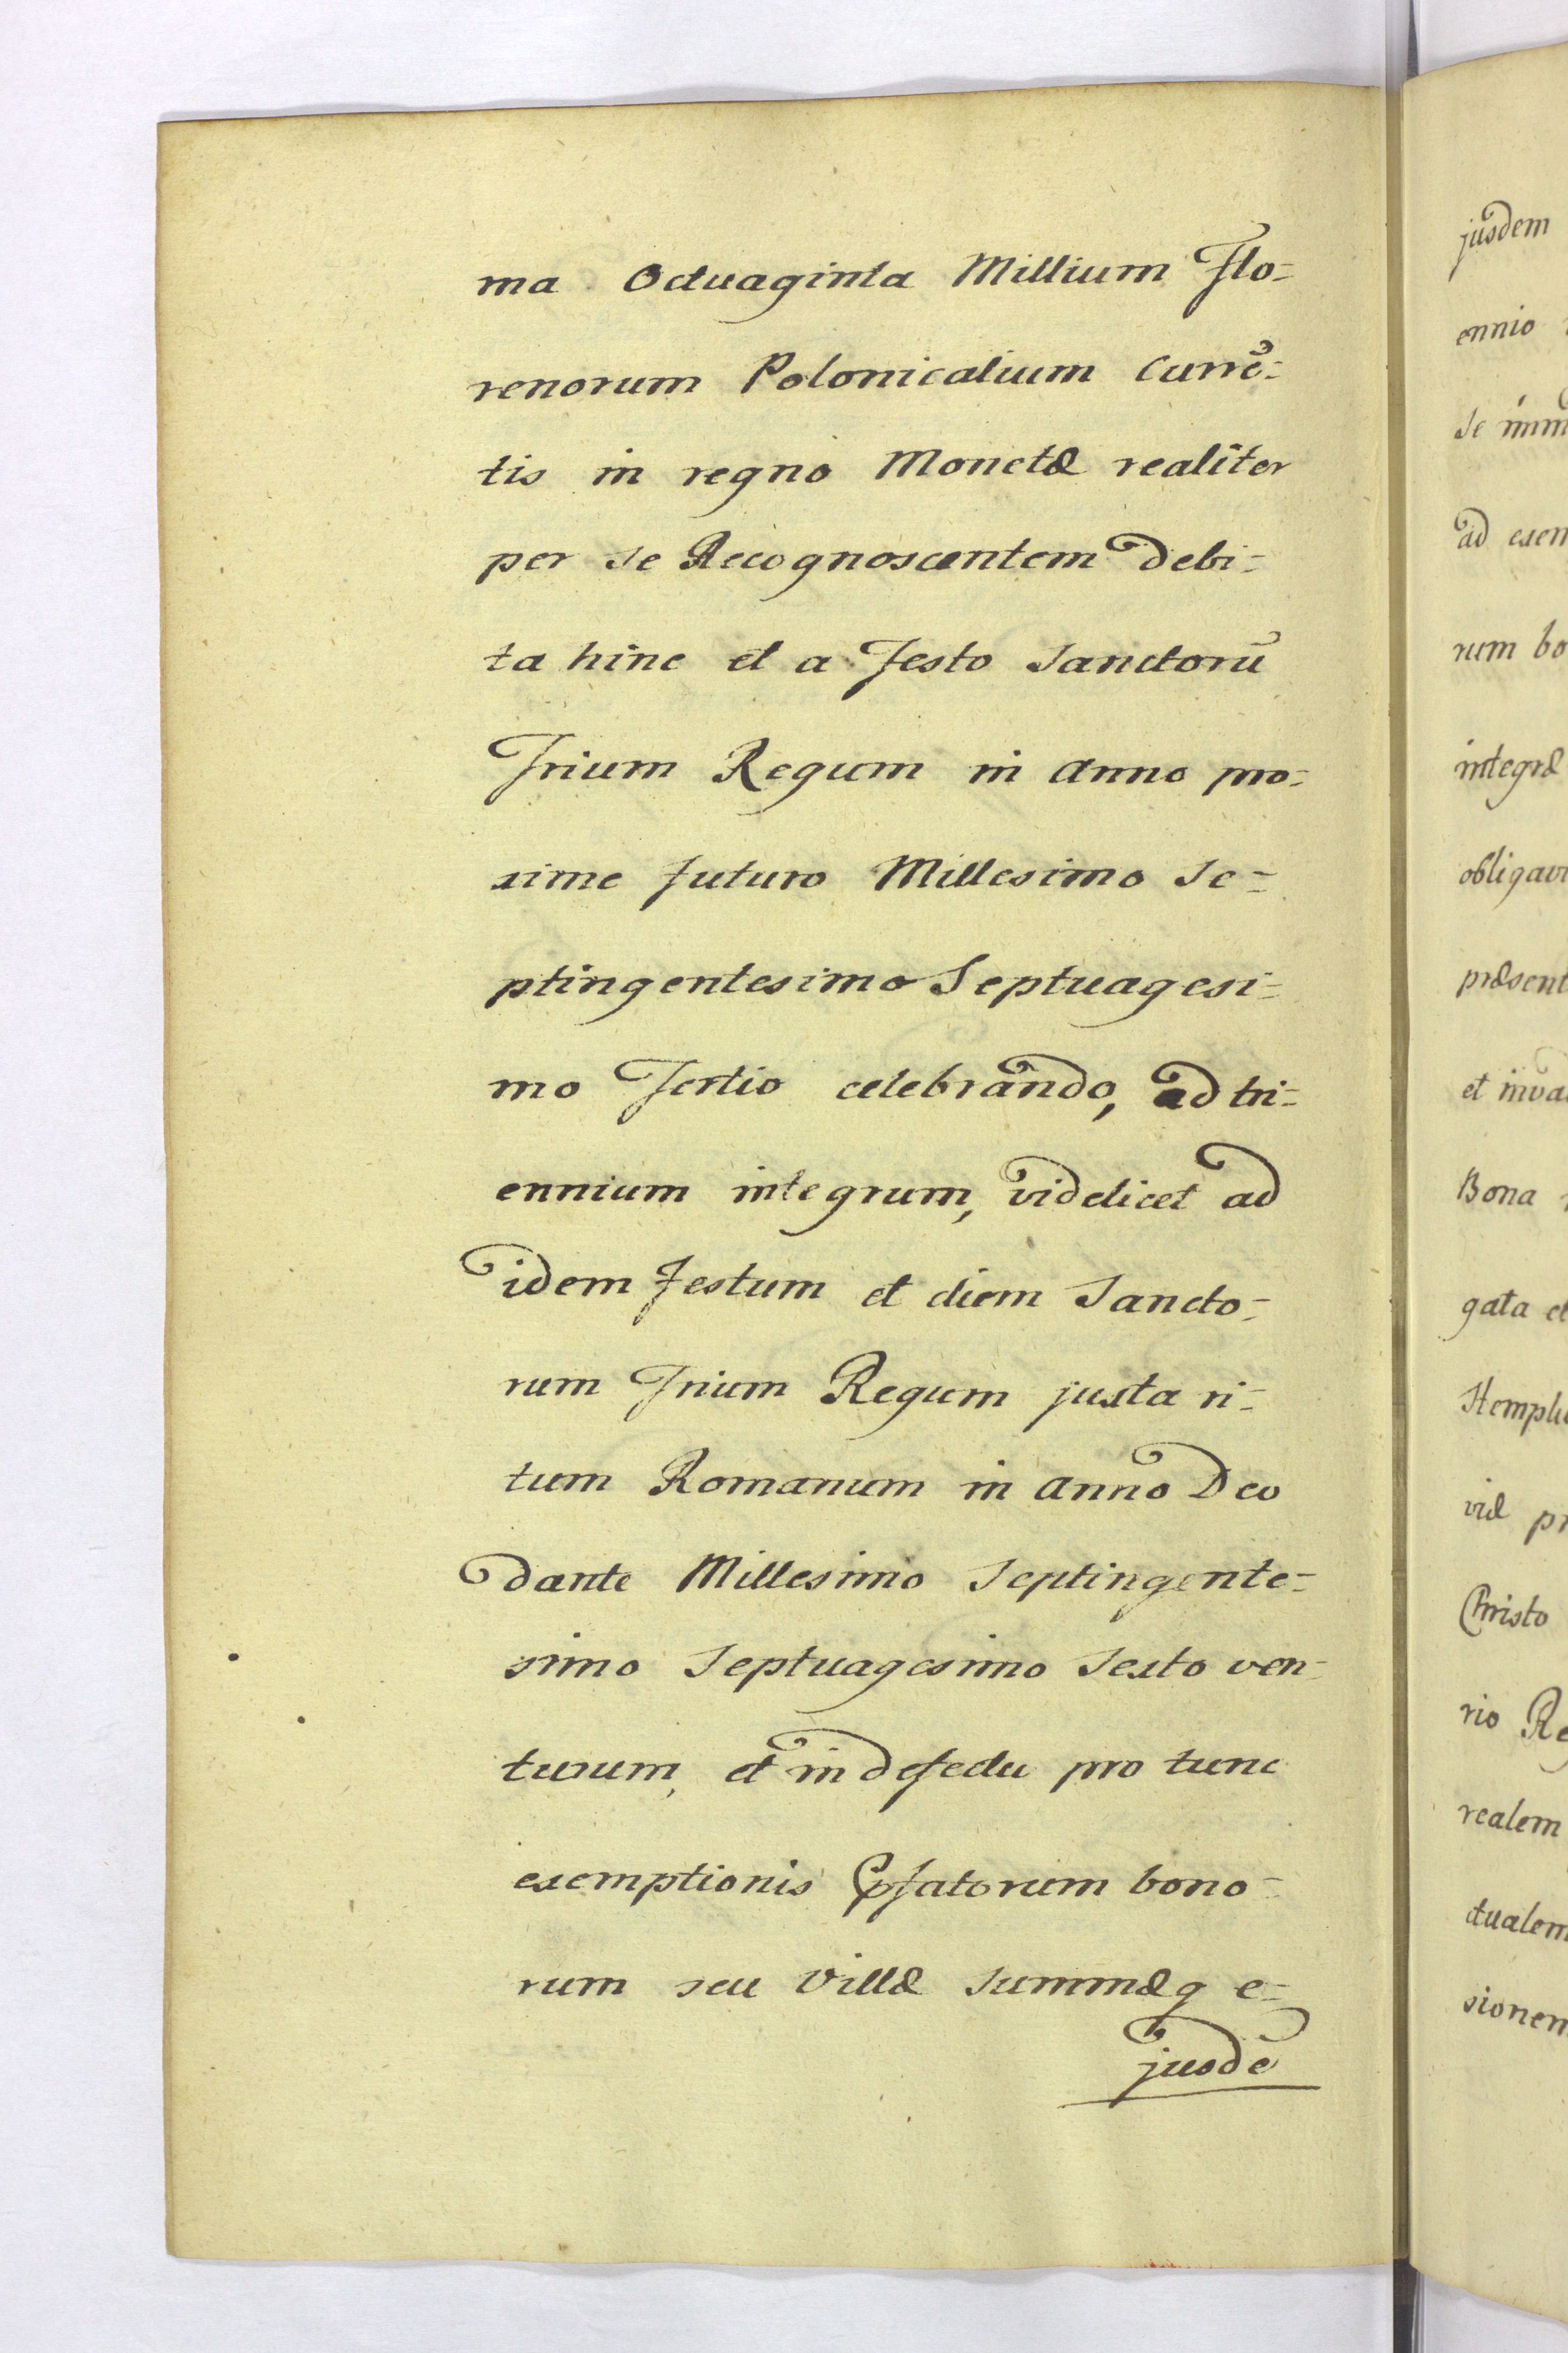 ma Octuaginta Millium Flo=
renorum Polonicalium Currē=
tis in regno Monetæ realiter
per se Recognoscentem debi=
ta hinc et a Festo Sanctorū
Trium Regum in anno pro=
xime futuro Millesimo Se=
ptingentesimo Septuagesi=
mo Tertio celebrando, ad tri=
ennium integrum, videlicet ad
idem Festum et diem Sancto=
rum Trium Regum juxta ri=
tum Romanum in anno Deo
dante Millesimo Septingente=
simo Septuagesimo Sexto ven=
turum, et in defectu pro tunc
exemptionis pfatorum bono=
rum seu Villæ Summæq e=
jusdē
jusdem
ennio
se
ad exem
rum bo
integræ
obligavi
præsent
et inva
Bona
gata et
Hemplu
viæ pr
Christo
rio Re
realem
ctualem
sionem